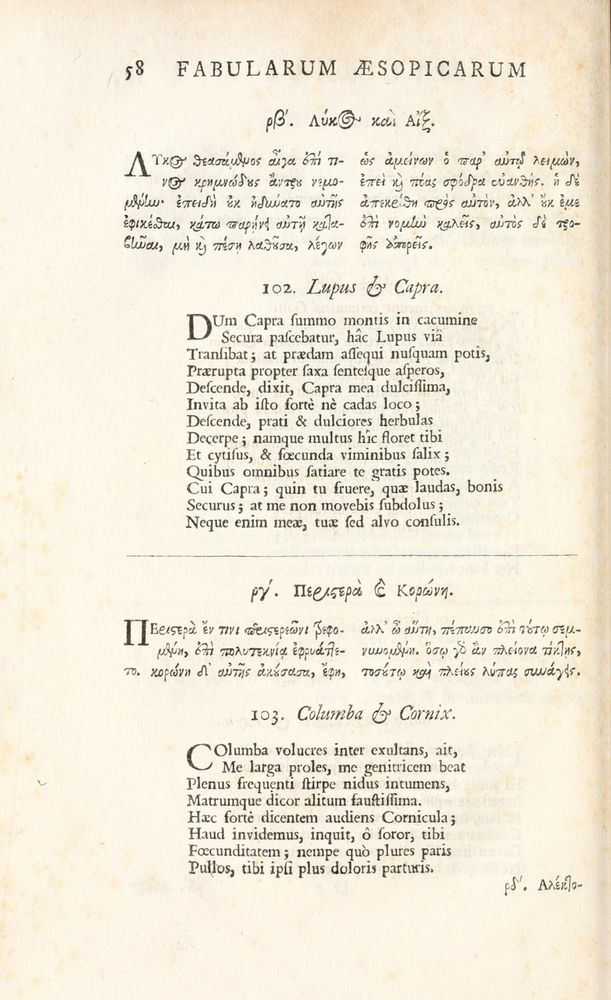 58 FABULARUM ÆSOPICARUM
ρβ'. Λύκος καὶ Αἴξ.
ΛΥκος θεασάμενος αἶγα ἐπί τι-
νος κρημνώδους ἄντρου νεμο-
μένην· ἐπειδὴ οὐκ ἠδύνατο αὐτῆς
ἐφικέσθαι, κάτω παρῄνει αὐτῇ κατα-
βῆναι, μὴ καὶ πέσῃ λαθοῦσα, λέγων
ὡς ἀμείνων ὁ παρ' αὐτῷ λειμών,
ἐπεὶ καὶ πόας σφόδρα εὐανθής. ἡ δὲ
ἀπεκρίθη πρὸς αὐτόν, ἀλλ' οὐκ ἐμὲ
ἐπὶ νομὴν καλεῖς, αὐτὸς δὲ τρο-
φῆς ἀπορεῖς.
102. Lupus & Capra.
DUm Capra ſummo montis in cacumine
Secura paſcebatur, hâc Lupus viâ
Tranſibat; at prædam aſſequi nuſquam potis,
Prærupta propter ſaxa ſenteſque aſperos,
Deſcende, dixit, Capra mea dulciſſima,
Invita ab iſto fortè nè cadas loco;
Deſcende, prati & dulciores herbulas
Decerpe; namque multus hîc floret tibi
Et cytiſus, & fœcunda viminibus ſalix;
Quibus omnibus ſatiare te gratis potes.
Cui Capra; quin tu fruere, quæ laudas, bonis
Securus; at me non movebis ſubdolus;
Neque enim meæ, tuæ ſed alvo conſulis.
ργ'. Περιστερὰ καὶ Κορώνη.
ΠΕριστερὰ ἔν τινι περιστερεῶνι τρεφο-
μένη, ἐπὶ πολυτεκνίᾳ ἐφρυάττε-
το. κορώνη δ' αὐτῆς ἀκούσασα, ἔφη,
ἀλλ' ὦ αὕτη, πέπαυσο ἐπὶ τούτῳ σεμ-
νυνομένη. ὅσῳ γὸ ἂν πλείονα τίκτῃς,
τοσούτῳ καὶ πλείους λύπας συνάγεις.
103. Columba & Cornix.
COlumba volucres inter exultans, ait,
Me larga proles, me genitricem beat
Plenus frequenti ſtirpe nidus intumens,
Matrumque dicor alitum fauſtiſſima.
Hæc fortè dicentem audiens Cornicula;
Haud invidemus, inquit, ô ſoror, tibi
Fœcunditatem; nempe quò plures paris
Pullos, tibi ipſi plus doloris parturis.
ρδ'. Αλέκτο-